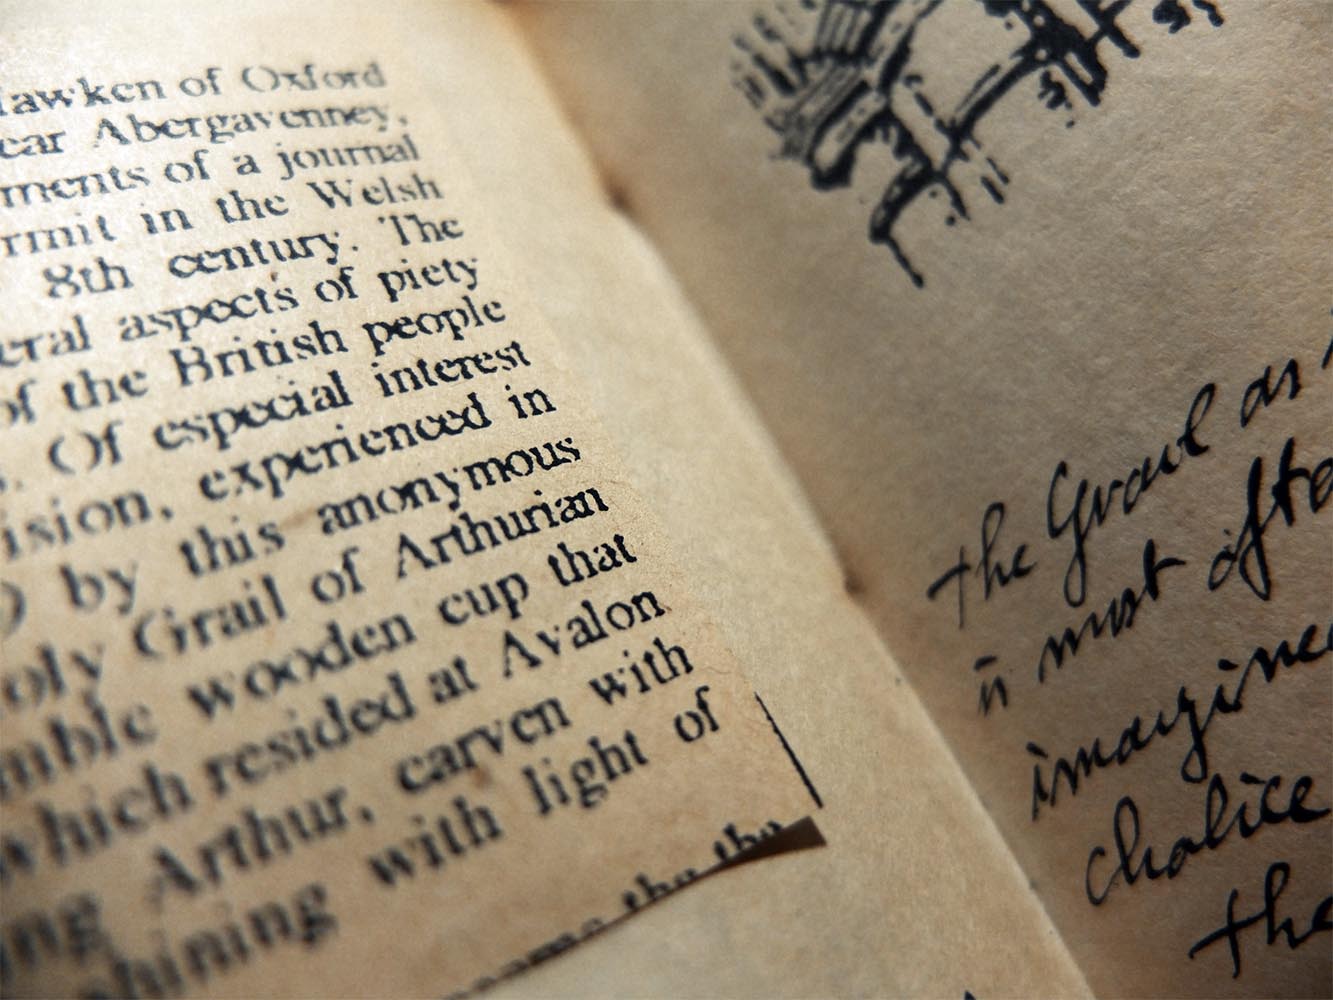 lawken of Oxford
ear Abergavenney,
ments of a journal
rmit in the Welsh
8th century. The
eral aspects of piety
of the British people
. Of especial interest
ision, experienced in
) by this anonymous
oly Grail of Arthurian
mble wooden cup that
which resided at Avalon
ng Arthur, carven with
shining with light of
the
the Grail as
is most ofte
imagined
chalice
the